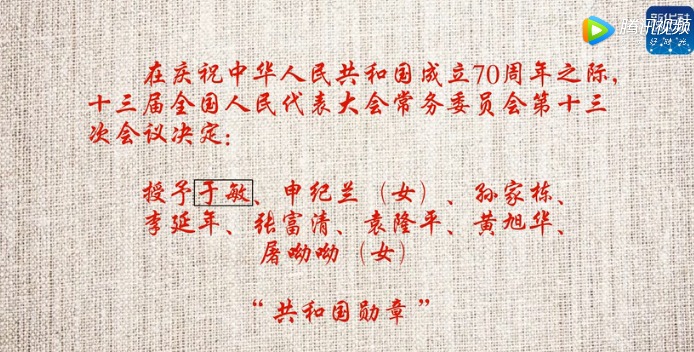 新华社
腾讯视频
在庆祝中华人民共和国成立70周年之际，
十三届全国人民代表大会常务委员会第十三
次会议决定：
授予于敏、申纪兰（女）、孙家栋、
李延年、张富清、袁隆平、黄旭华、
屠呦呦（女）
“共和国勋章”